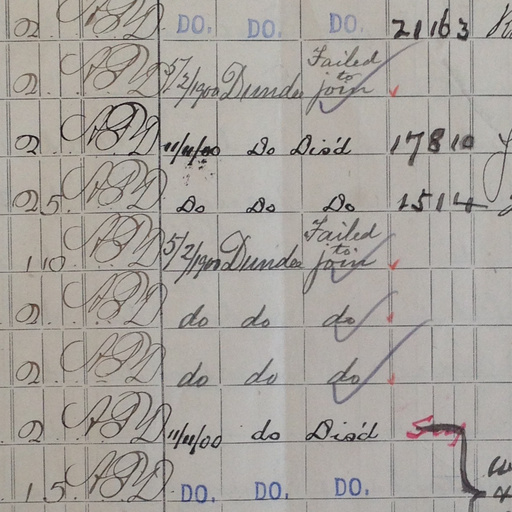 2. DO. DO. DO. 21163
2. 5/2/1900 Dundee Failed to join
2. 11/11/00 Do Dis'd 17810
25. Do Do Do 1514
110 5/2/1900 Dundee Failed to join
2. do do do
2. do do do
2. 11/11/00 do Dis'd
15. DO. DO. DO.